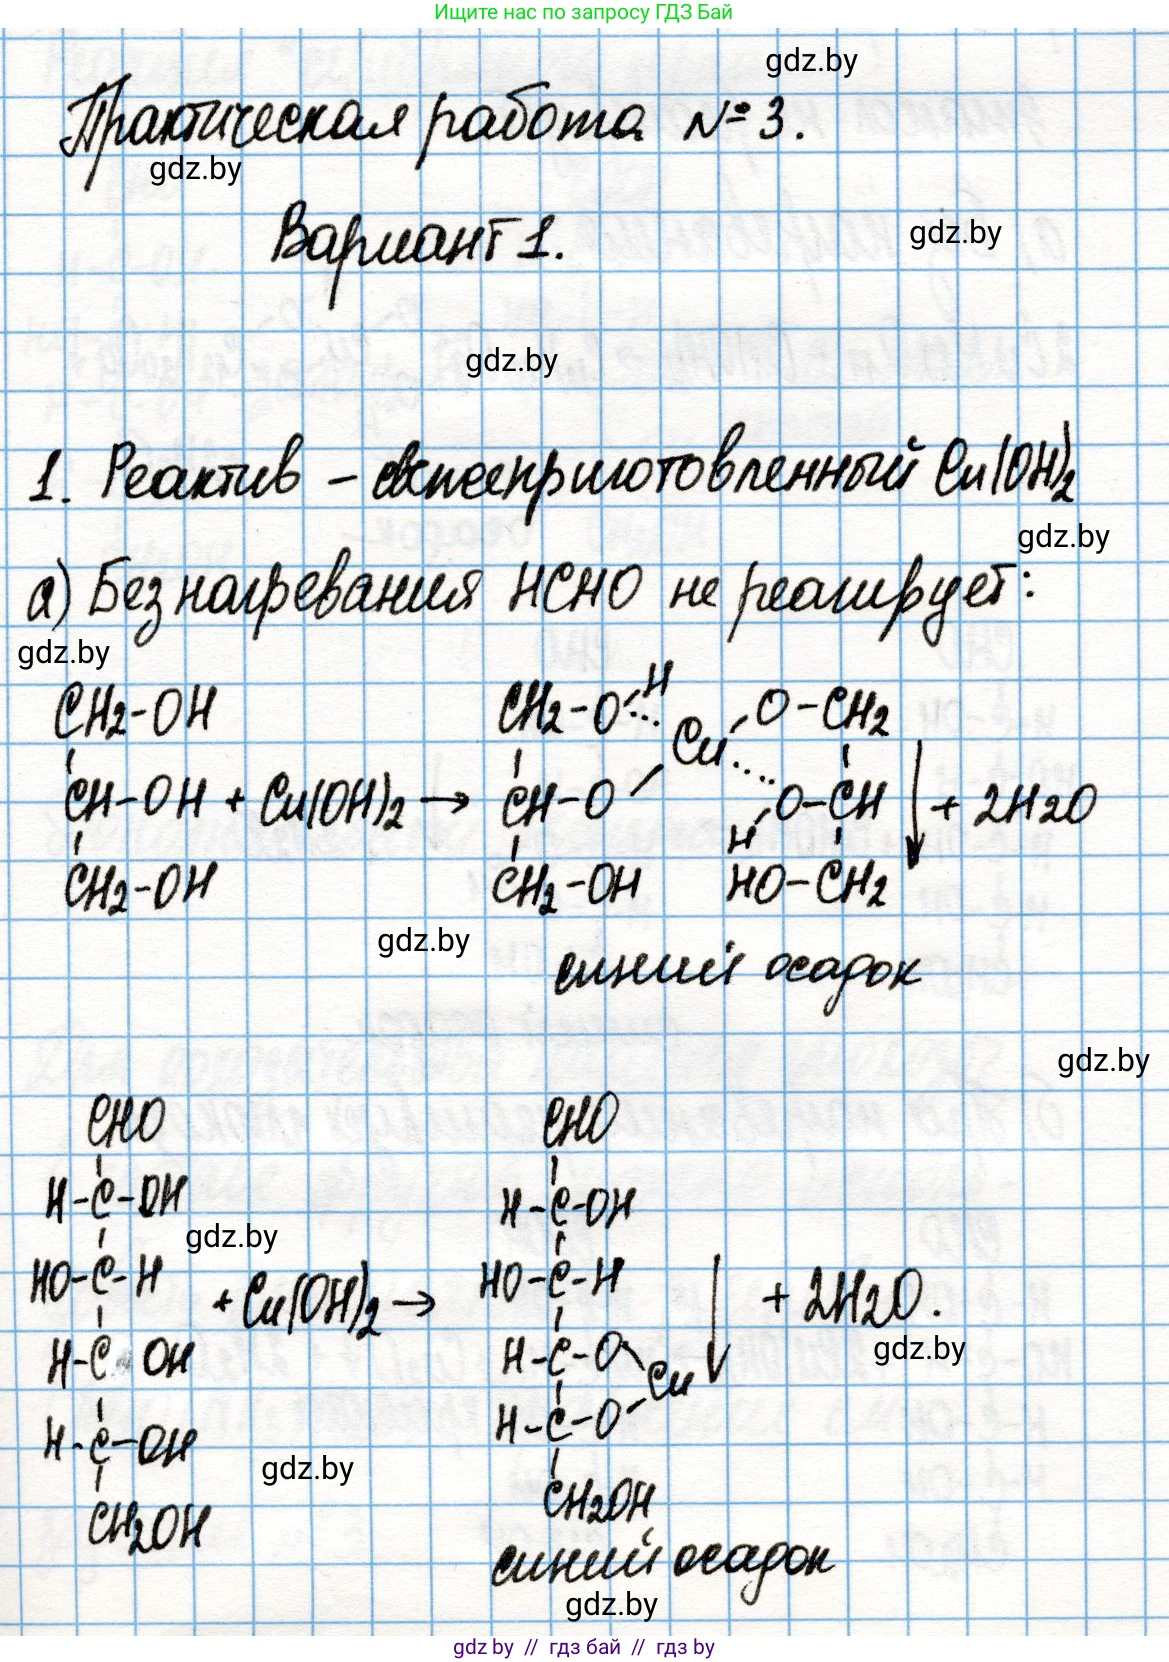 Ищите нас по запросу ГДЗ Бай
gdz.by
Практическая работа №3.
gdz.by
Вариант 1.
gdz.by
gdz.by
1. Реактив – свежеприготовленный Cu(OH)2
gdz.by
а) Без нагревания HCHO не реагирует:
gdz.by
CH2-OH CH2-O H O-CH2
Cu
CH-OH + Cu(OH)2 → CH-O O-CH ↓ + 2H2O
H
CH2-OH CH2-OH HO-CH2
gdz.by
синий осадок
gdz.by
CHO CHO
H-C-OH H-C-OH
gdz.by
HO-C-H HO-C-H
+ Cu(OH)2 → ↓ + 2H2O.
gdz.by
H-C-OH H-C-O
Cu
H-C-OH H-C-O
gdz.by
CH2OH CH2OH
синий осадок
gdz.by
gdz.by // гдз бай // gdz.by